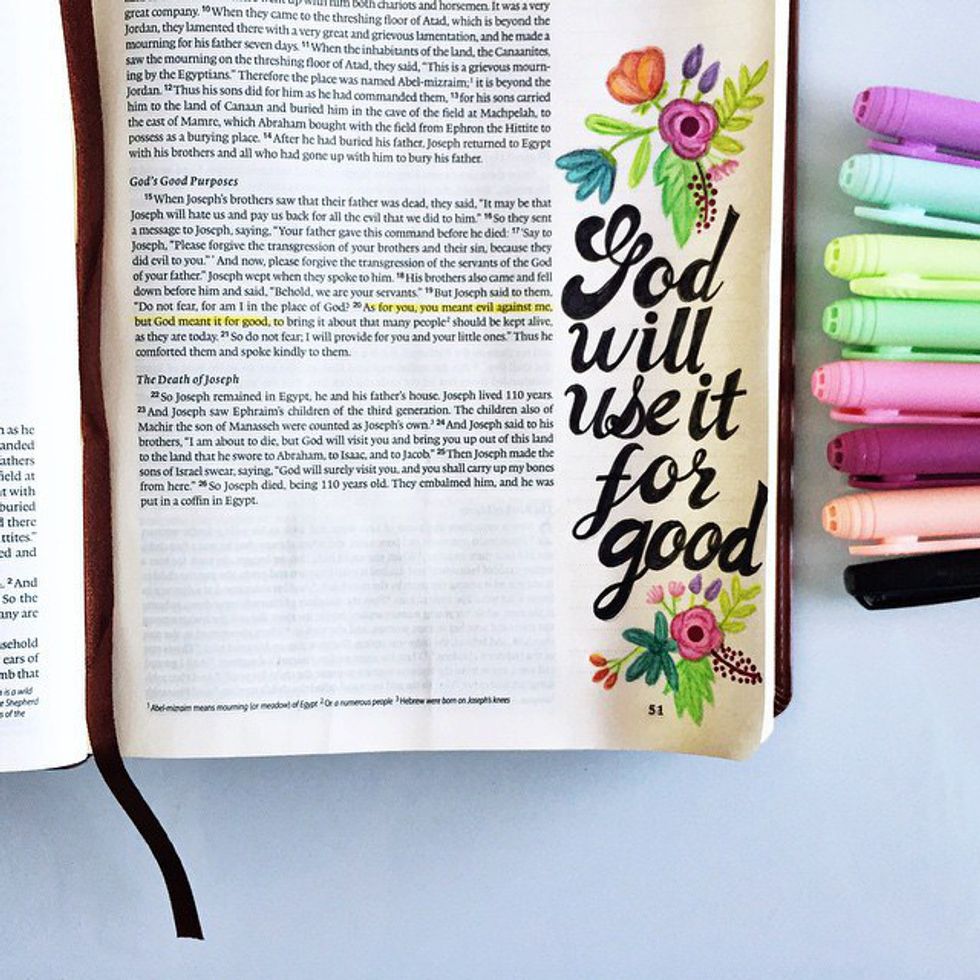 great company. 10 When they came to the threshing floor of Atad, which is beyond the
Jordan, they lamented there with a very great and grievous lamentation, and he made a
mourning for his father seven days. 11 When the inhabitants of the land, the Canaanites,
saw the mourning on the threshing floor of Atad, they said, "This is a grievous mourn-
ing by the Egyptians." Therefore the place was named Abel-mizraim;1 it is beyond the
Jordan. 12 Thus his sons did for him as he had commanded them, 13 for his sons carried
him to the land of Canaan and buried him in the cave of the field at Machpelah, to
the east of Mamre, which Abraham bought with the field from Ephron the Hittite to
possess as a burying place. 14 After he had buried his father, Joseph returned to Egypt
with his brothers and all who had gone up with him to bury his father.
God's Good Purposes
15 When Joseph's brothers saw that their father was dead, they said, "It may be that
Joseph will hate us and pay us back for all the evil that we did to him." 16 So they sent
a message to Joseph, saying, "Your father gave this command before he died: 17 'Say to
Joseph, "Please forgive the transgression of your brothers and their sin, because they
did evil to you."' And now, please forgive the transgression of the servants of the God
of your father." Joseph wept when they spoke to him. 18 His brothers also came and fell
down before him and said, "Behold, we are your servants." 19 But Joseph said to them,
"Do not fear, for am I in the place of God? 20 As for you, you meant evil against me,
but God meant it for good, to bring it about that many people2 should be kept alive,
as they are today. 21 So do not fear; I will provide for you and your little ones." Thus he
comforted them and spoke kindly to them.
The Death of Joseph
22 So Joseph remained in Egypt, he and his father's house. Joseph lived 110 years.
23 And Joseph saw Ephraim's children of the third generation. The children also of
Machir the son of Manasseh were counted as Joseph's own.3 24 And Joseph said to his
brothers, "I am about to die, but God will visit you and bring you up out of this land
to the land that he swore to Abraham, to Isaac, and to Jacob." 25 Then Joseph made the
sons of Israel swear, saying, "God will surely visit you, and you shall carry up my bones
from here." 26 So Joseph died, being 110 years old. They embalmed him, and he was
put in a coffin in Egypt.
1 Abel-mizraim means mourning (or meadow) of Egypt 2 Or a numerous people 3 Hebrew were born on Joseph's knees
51
God
will
use it
for
good
as he
field at
with
buried
there
and
2 And
So the
any are
ears of
that
is a wild
Shepherd
of the